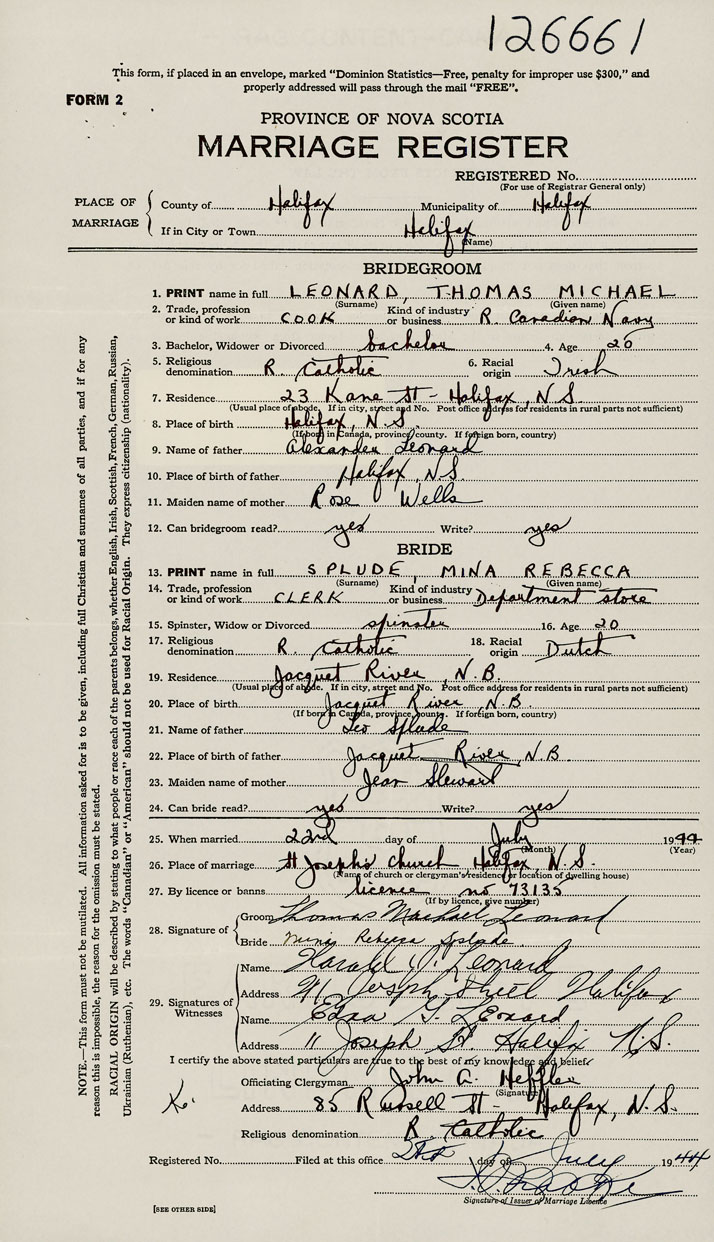 126661
This form, if placed in an envelope, marked "Dominion Statistics—Free, penalty for improper use $300," and
properly addressed will pass through the mail "FREE".
FORM 2
PROVINCE OF NOVA SCOTIA
MARRIAGE REGISTER
REGISTERED No.
(For use of Registrar General only)
PLACE OF MARRIAGE
County of Halifax Municipality of Halifax
If in City or Town Halifax
(Name)
BRIDEGROOM
1. PRINT name in full LEONARD, THOMAS MICHAEL
(Surname) (Given name)
2. Trade, profession or kind of work COOK Kind of industry or business R. Canadian Navy
3. Bachelor, Widower or Divorced bachelor 4. Age 20
5. Religious denomination R. Catholic 6. Racial origin Irish
7. Residence 23 Kane St - Halifax, N.S.
(Usual place of abode. If in city, street and No. Post office address for residents in rural parts not sufficient)
8. Place of birth Halifax, N.S.
(If born in Canada, province, county. If foreign born, country)
9. Name of father Alexander Leonard
10. Place of birth of father Halifax, N.S.
11. Maiden name of mother Rose Wells
12. Can bridegroom read? yes Write? yes
BRIDE
13. PRINT name in full SPLUDE, MINA REBECCA
(Surname) (Given name)
14. Trade, profession or kind of work CLERK Kind of industry or business Department store
15. Spinster, Widow or Divorced spinster 16. Age 20
17. Religious denomination R. Catholic 18. Racial origin Dutch
19. Residence Jacquet River, N.B.
(Usual place of abode. If in city, street and No. Post office address for residents in rural parts not sufficient)
20. Place of birth Jacquet River, N.B
(If born in Canada, province, county. If foreign born, country)
21. Name of father Leo Splude
22. Place of birth of father Jacquet River, N.B.
23. Maiden name of mother Jean Stewart
24. Can bride read? yes Write? yes
25. When married 22nd day of July 1944
(Month) (Year)
26. Place of marriage St Joseph's Church Halifax, N.S.
(Name of church or clergyman's residence or location of dwelling house)
27. By licence or banns licence no 73135
(If by licence, give number)
28. Signature of
Groom Thomas Michael Leonard
Bride Mina Rebecca Splude
29. Signatures of Witnesses
Name Harald Leonard
Address Joseph Street Halifax
Name Edna G. Leonard
Address 11 Joseph St. Halifax N.S.
I certify the above stated particulars are true to the best of my knowledge and belief.
Officiating Clergyman John A. Heffler
(Signature)
Address 85 Russell St - Halifax, N.S.
Religious denomination R. Catholic
Registered No. Filed at this office day of July 1944
Signature of Issuer of Marriage Licence
[SEE OTHER SIDE]
NOTE.—This form must not be mutilated. All information asked for is to be given, including full Christian and surnames of all parties, and if for any
reason this is impossible, the reason for the omission must be stated.
RACIAL ORIGIN will be described by stating to what people or race each of the parents belongs, whether English, Irish, Scottish, French, German, Russian,
Ukrainian (Ruthenian), etc. The words "Canadian" or "American" should not be used for Racial Origin. They express citizenship (nationality).